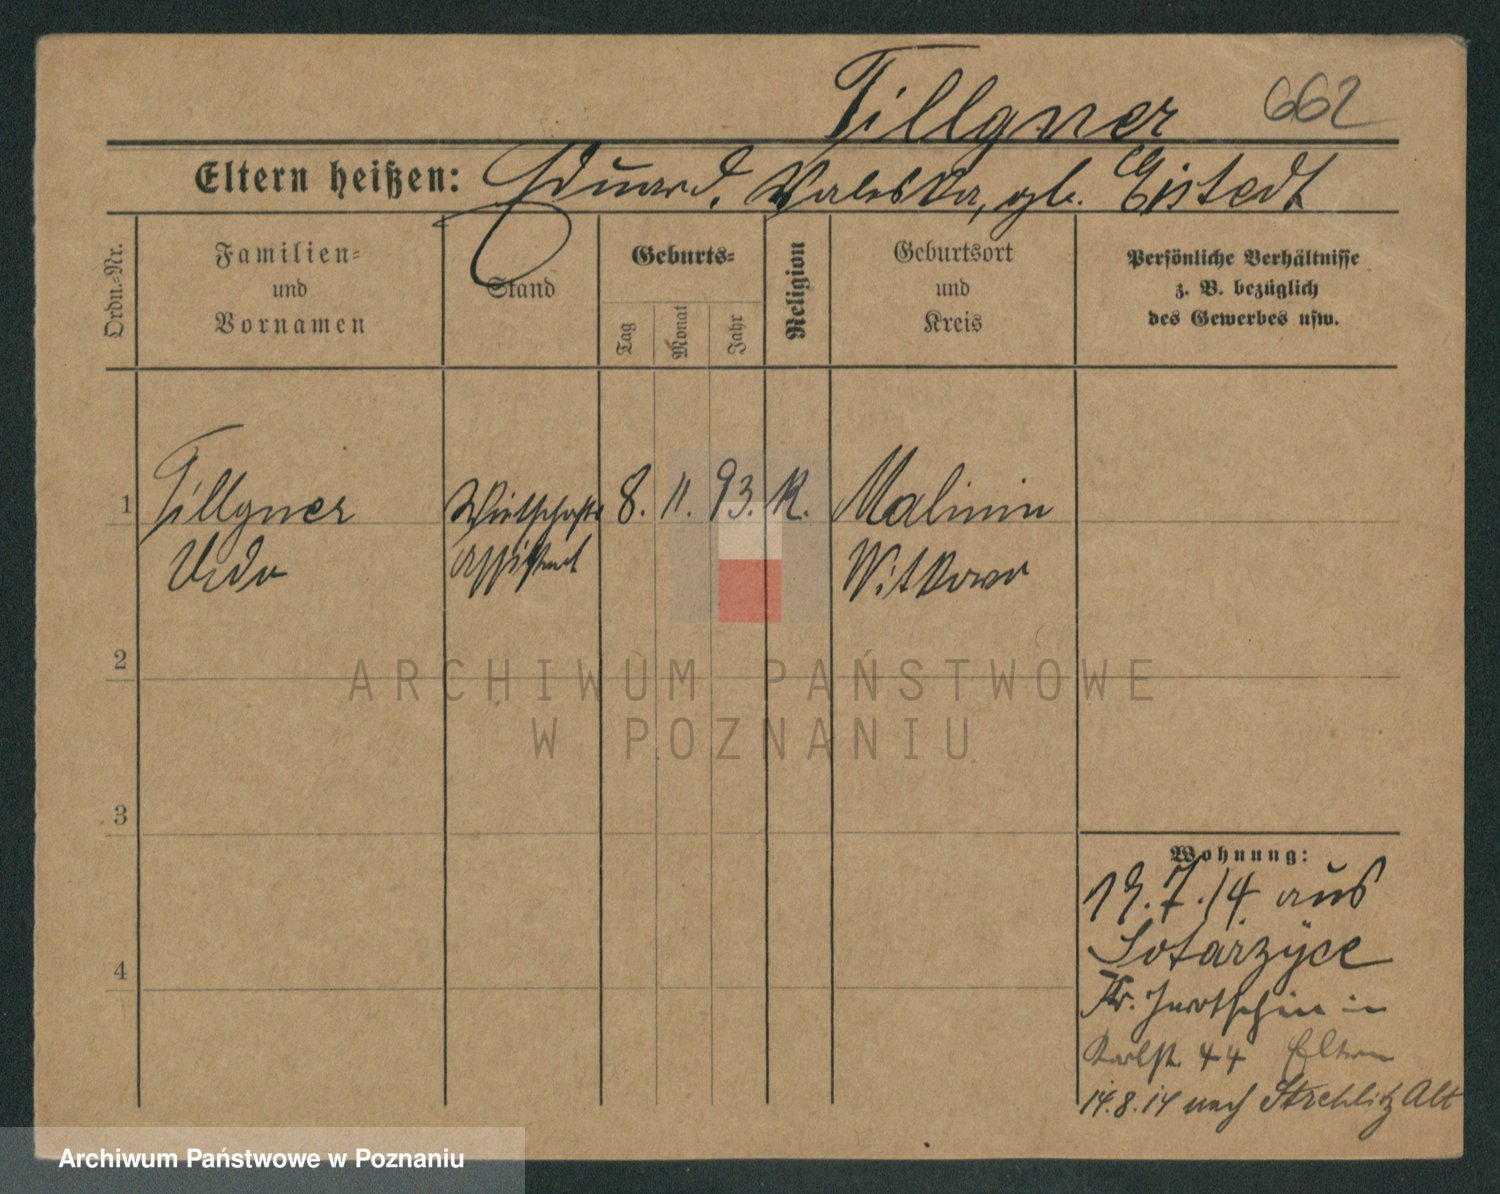 Tillgner 662
Eltern heißen: Eduard, Valeska, gb. Eistedt
Ordn.-Nr.
Familien-
und
Vornamen
Stand
Geburts-
Tag
Monat
Jahr
Religion
Geburtsort
und
Kreis
Persönliche Verhältnisse
z. B. bezüglich
des Gewerbes usw.
1 Tillgner Wirtschafts 8. 11. 93. K. Malinin
Udo assistent Witkowo
2
ARCHIWUM PAŃSTWOWE
W POZNANIU
3
Wohnung:
19.7.14 aus
Lotarzyce
4
Kr. Jarotschin in
Karlstr. 44 Eltern
14.8.14 nach Strehlitz Alt
Archiwum Państwowe w Poznaniu